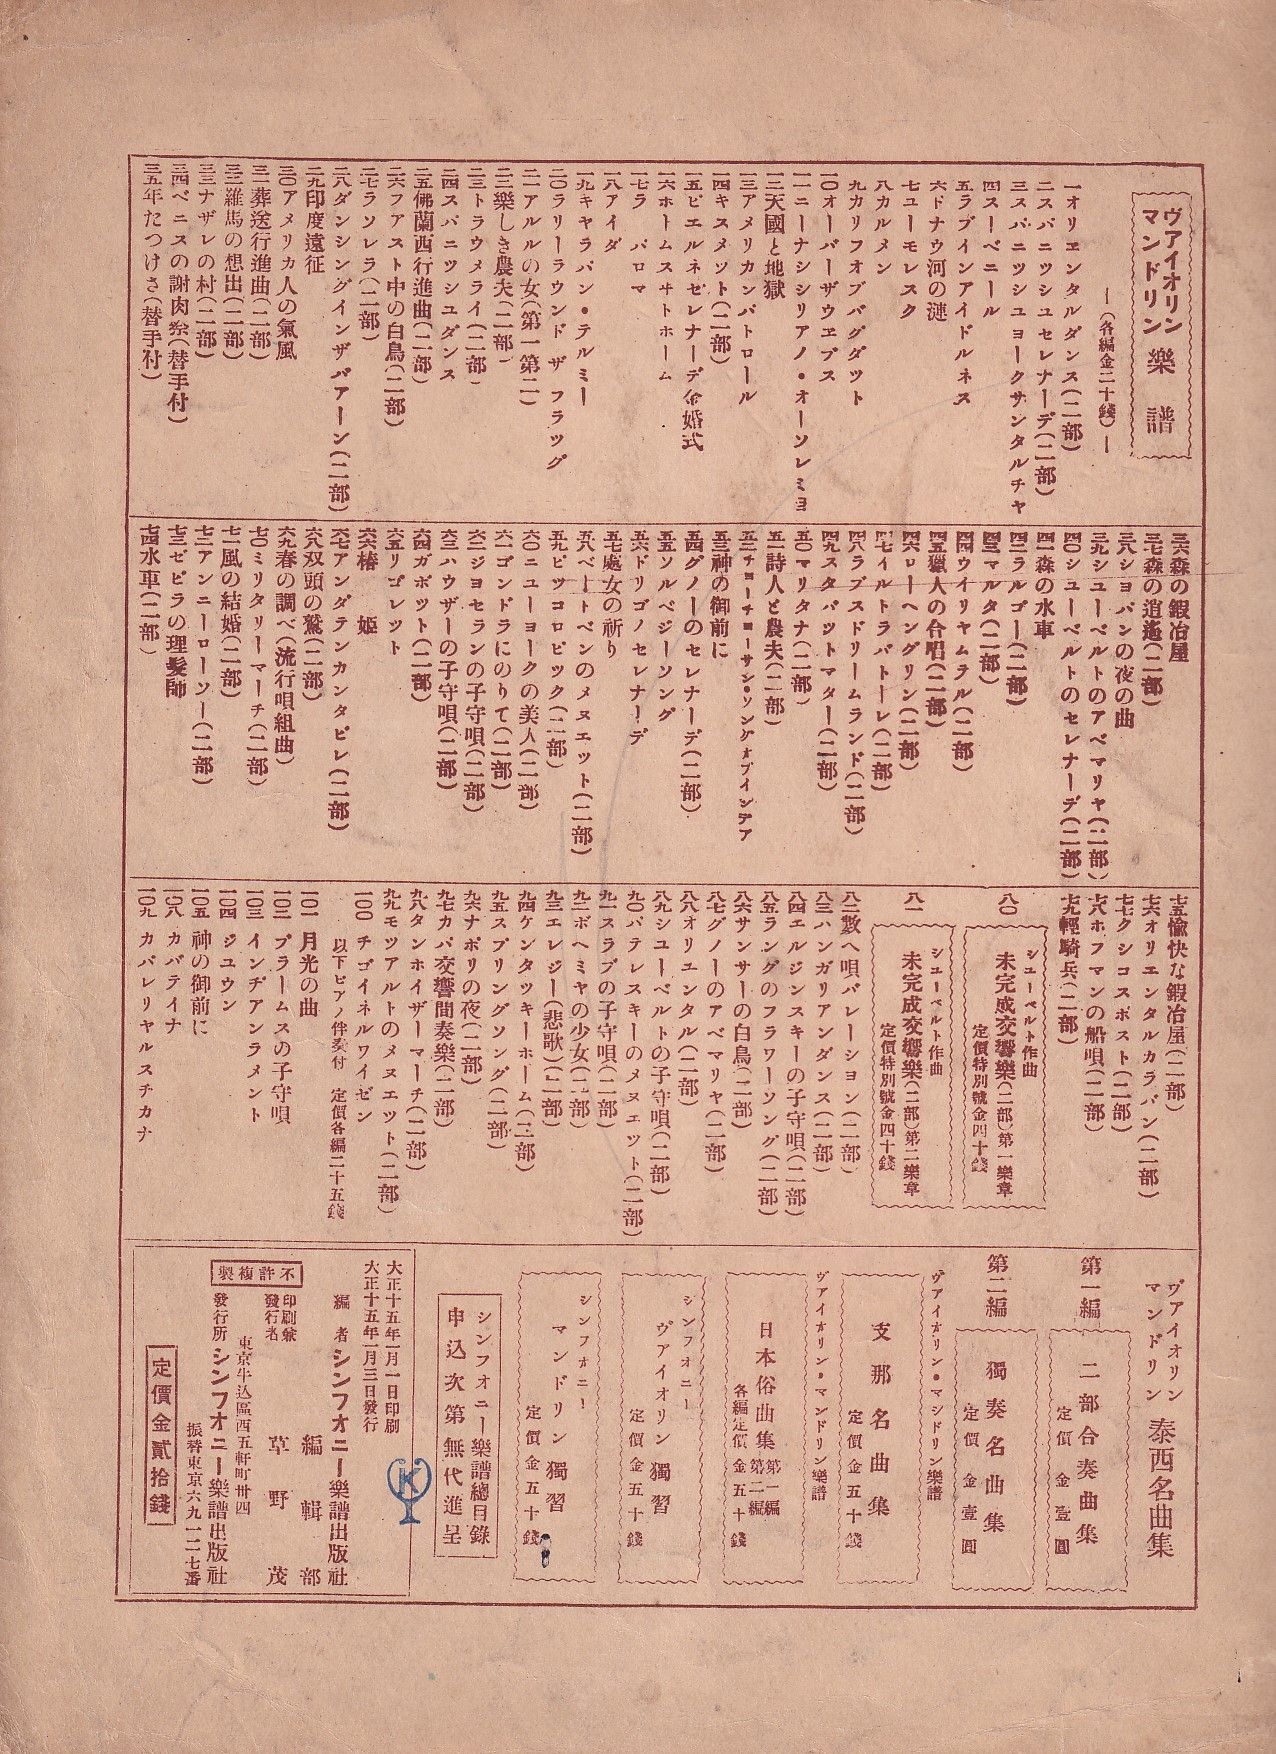 ヴァイオリン
マンドリン
樂譜
―(各編金二十錢)―
一オリエンタルダンス(二部)
二スパニッシュセレナーデ(二部)
三スパニッシュヨークサンタルチヤ
四スーベニール
五ラブインアイドルネス
六ドナウ河の漣
七ユーモレスク
八カルメン
九カリフオブバグダット
一〇オーバーザウエブス
一一ニーナシシリアノ・オーソレミヨ
一二天國と地獄
一三アメリカンパトロール
一四キスメット(二部)
一五ピエルネゼレナーデ金婚式
一六ホームスヰトホーム
一七ラ パロマ
一八アイダ
一九キャラバン・テルミー
二〇ラリーラウンド ザ フラッグ
二一アルルの女(第一第二)
二二樂しき農夫(二部)
二三トラウメライ(二部)
二四スパニッシュダンス
二五佛蘭西行進曲(二部)
二六ファスト中の白鳥(二部)
二七ラソレラ(二部)
二八ダンシングインザバアーン(二部)
二九印度遠征
三〇アメリカ人の氣風
三一葬送行進曲(二部)
三二羅馬の想出(二部)
三三ナザレの村(二部)
三四ベニスの謝肉祭(替手付)
三五年たつけさ(替手付)
三六森の鍛冶屋
三七森の逍遙(二部)
三八ショパンの夜の曲
三九シューベルトのアベマリヤ(二部)
四〇シューベルトのセレナーデ(二部)
四一森の水車
四二ラルゴー(二部)
四三マルタ(二部)
四四ウイリヤムラル(二部)
四五獵人の合唱(二部)
四六ローヘングリン(二部)
四七イルトラバトーレ(二部)
四八ラブスドリームランド(二部)
四九スタバットマター(二部)
五〇マリタナ(二部)
五一詩人と農夫(二部)
五二チョーチョーサン・ソングオブインデア
五三神の御前に
五四グノーのセレナーデ(二部)
五五ソルベジーソング
五六ドリゴノセレナーデ
五七處女の祈り
五八ベートベンのメヌエット(二部)
五九ピッコロピック(二部)
六〇ニューヨークの美人(二部)
六一ゴンドラにのりて(二部)
六二ジョセランの子守唄(二部)
六三ハウザーの子守唄(二部)
六四ガボット(二部)
六五リゴレット
六六椿 姫
六七アンダテンカンタビレ(二部)
六八双頭の鷲(二部)
六九春の調べ(流行唄組曲)
七〇ミリタリーマーチ(二部)
七一風の結婚(二部)
七二アンニーローソー(二部)
七三ゼビラの理髪師
七四水車(二部)
七五愉快な鍛冶屋(二部)
七六オリエンタルカラバン(二部)
七七クシコスポスト(二部)
七八ホフマンの船唄(二部)
七九輕騎兵(二部)
八〇
シューベルト作曲
未完成交響樂(二部)第一樂章
定價特別號金四十錢
八一
シューベルト作曲
未完成交響樂(二部)第二樂章
定價特別號金四十錢
八二數へ唄バレーション(二部)
八三ハンガリアンダンス(二部)
八四エルジンスキーの子守唄(二部)
八五ラングのフラワーソング(二部)
八六サンサーの白鳥(二部)
八七グノーのアベマリヤ(二部)
八八オリユンタル(二部)
八九シューベルトの子守唄(二部)
九〇パテレスキーのメヌエット(二部)
九一スラブの子守唄(二部)
九二ボヘミヤの少女(二部)
九三エレジー(悲歌)(二部)
九四ケンタッキーホーム(二部)
九五スプリングソング(二部)
九六ナポリの夜(二部)
九七カバ交響間奏樂(二部)
九八タンホイザーマーチ(二部)
九九モツアルトのメヌエット(二部)
一〇〇 チゴイネルワイゼン
以下ピアノ伴奏付 定價各編二十五錢
一〇一 月光の曲
一〇二 ブラームスの子守唄
一〇三 インヂアンラメント
一〇四 ジュウン
一〇五 神の御前に
一〇八 カバテイナ
一〇九 カバレリヤルスチカナ
ヴァイオリン
マンドリン
泰西名曲集
第一編
二部合奏曲集
定價 金壹圓
第二編
獨奏名曲集
定價 金壹圓
ヴァイオリン・マンドリン樂譜
支那名曲集
定價金五十錢
ヴァイオリン・マンドリン樂譜
日本俗曲集 第一編 第二編
各編定價金五十錢
シンフオニー
ヴァイオリン獨習
定價金五十錢
シンフオニー
マンドリン獨習
定價金五十錢
シンフオニー樂譜總目錄
申込次第無代進呈
大正十五年一月一日印刷
大正十五年一月三日發行
編者 シンフオニー樂譜出版社
編輯部
印刷兼
發行者
草野茂
東京牛込區西五軒町卅四
發行所 シンフオニー樂譜出版社
振替東京六九一二七番
不許複製
定價金貳拾錢
K